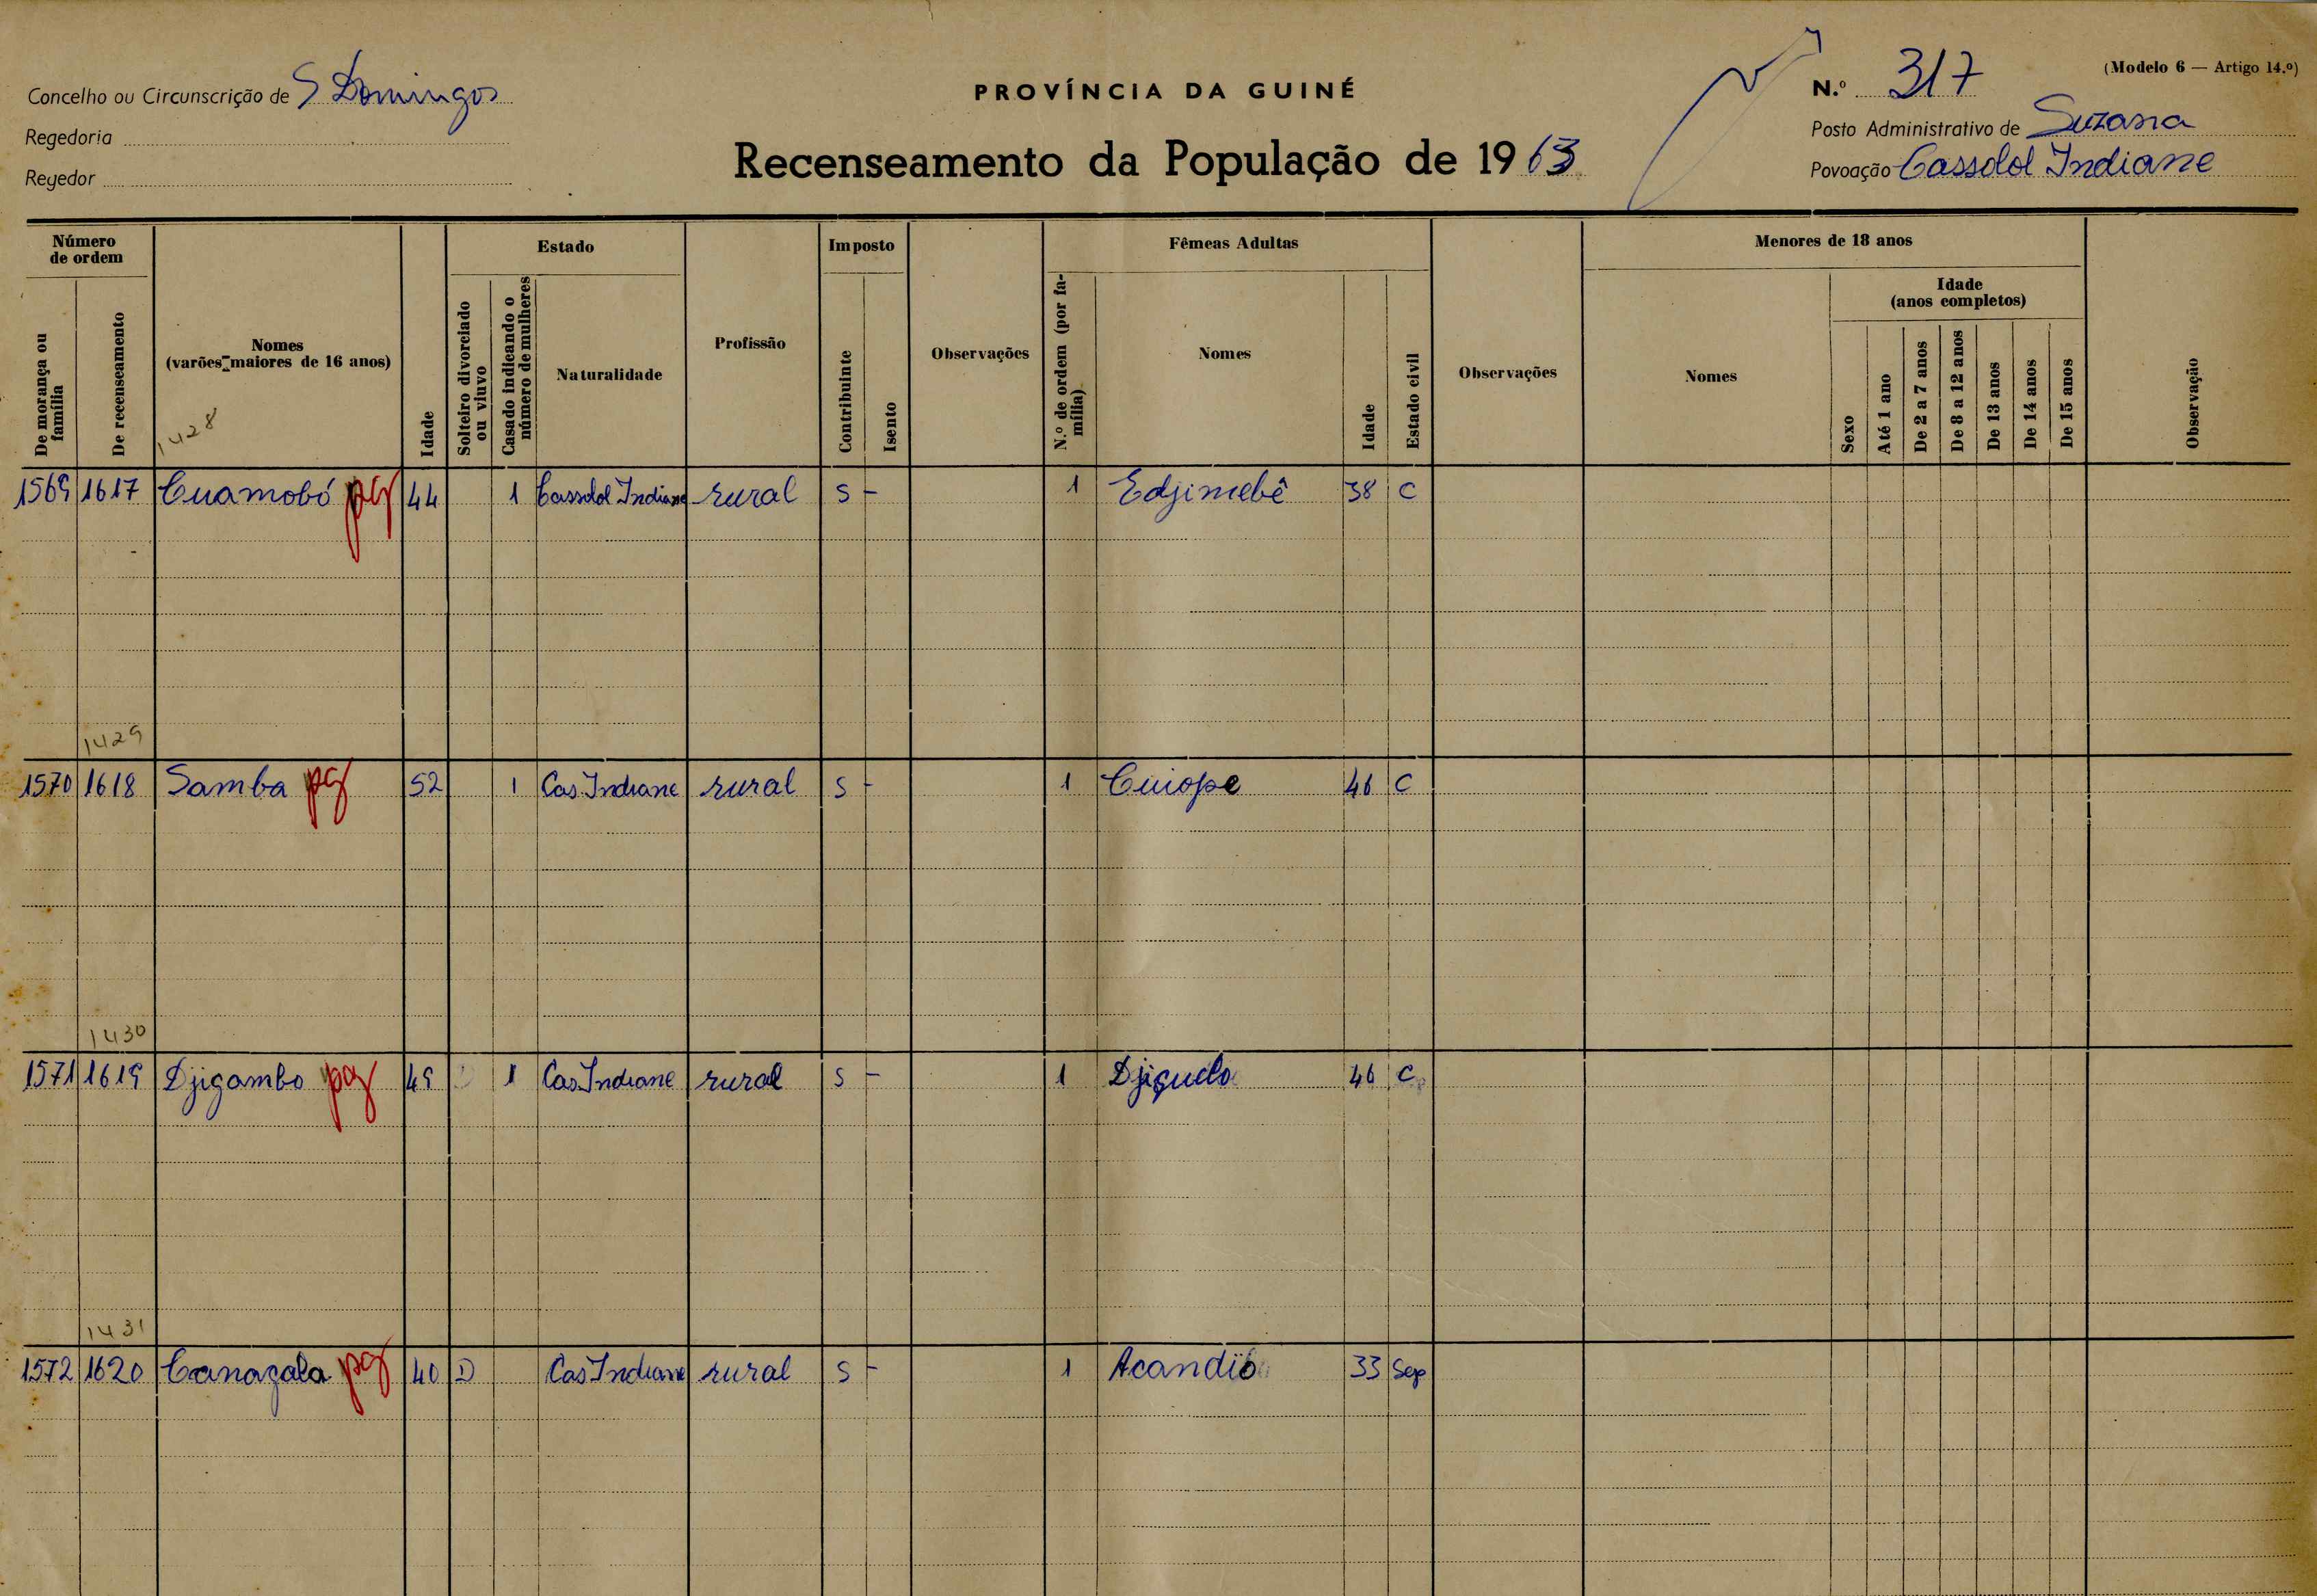 (Modelo 6 — Artigo 14.º)
Concelho ou Circunscrição de S Domingos
PROVÍNCIA DA GUINÉ
N.º 317
Regedoria
Posto Administrativo de Suzana
Regedor
Recenseamento da População de 1963
Povoação Cassolol Indiane
Número de ordem
Estado
Imposto
Fêmeas Adultas
Menores de 18 anos
De morança ou família
De recenseamento
Nomes
(varões maiores de 16 anos)
Idade
Solteiro divorciado ou viuvo
Casado indicando o número de mulheres
Naturalidade
Profissão
Contribuinte
Isento
Observações
N.º de ordem (por família)
Nomes
Idade
Estado civil
Observações
Nomes
Sexo
Idade
(anos completos)
Até 1 ano
De 2 a 7 anos
De 8 a 12 anos
De 13 anos
De 14 anos
De 15 anos
Observação
1428
1569 1617 Cuamobó pg 44 1 Cassolol Indiane rural S - 1 Edjimebê 38 C
1429
1570 1618 Samba pg 52 1 Cas. Indiane rural S - 1 Cuiope 46 C
1430
1571 1619 Djigambo pg 49 1 Cas. Indiane rural S - 1 Djiguelo 46 C
1431
1572 1620 Canagala pg 40 D Cas Indiane rural S - 1 Acandió 33 Sep